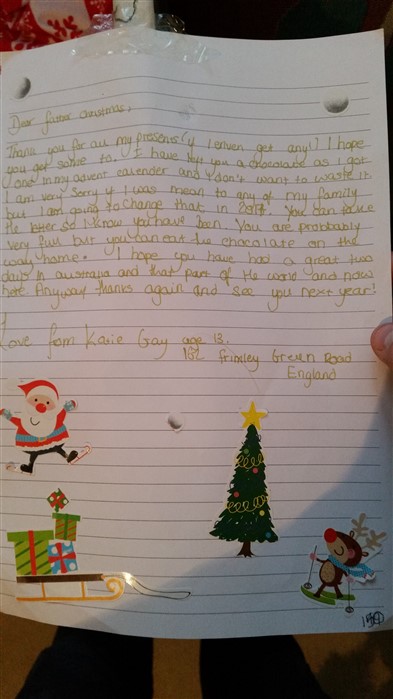 Dear father christmas,
Thank you for all my presents (if I even get any!) I hope
you get some to. I have left you a chocolate as I got
one in my advent calender and I don't want to waste it.
I am very sorry if I was mean to any of my family
but I am going to change that in 2017. You can take
the letter so I know you have been. You are probably
very full but you can eat the chocolate on the
way home. I hope you have had a great two
days in australia and that part of the world and now
here. Anyway thanks again and see you next year!
Love from Katie Gay age 13.
Frimley Green Road
England